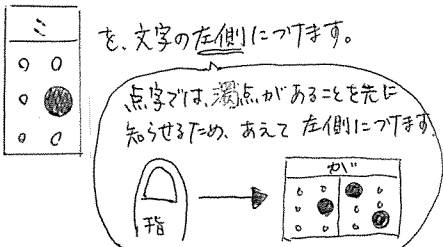 を、文字の左側につけます。
点字では、濁点があることを先に
知らせるため、あえて左側につけます
指
が